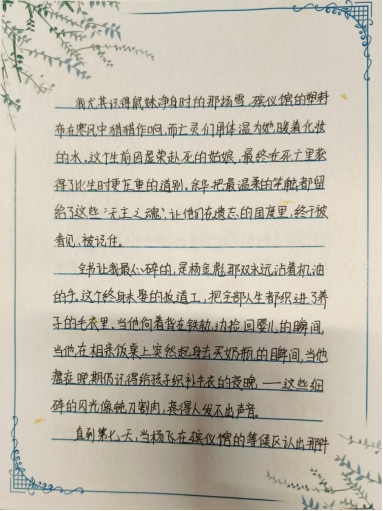 我尤其记得鼠妹净身时的那场雪，殡仪馆的塑料
布在寒风中猎猎作响，而亡灵们用体温为她暖着化妆
的水，这个生前因虚荣赴死的姑娘，最终在死亡里获
得了比生时更庄重的道别。余华把最温柔的笔触都留
给了这些"无主之魂"，让他们在遗忘的国度里，终于被
看见，被记住。
全书让我最心碎的，是杨金彪那双永远沾着机油
的手。这个终身未娶的扳道工，把全部人生都织进了养
子的毛衣里。当他佝着背在铁轨边捡回婴儿的瞬间，
当他在相亲饭桌上突然起身去买奶瓶的瞬间，当他
癌症晚期仍记得给孩子织补毛衣的夜晚，——这些细
碎的闪光像钝刀割肉，疼得人发不出声音。
直到第七天，当杨飞在殡仪馆的等候区认出那件